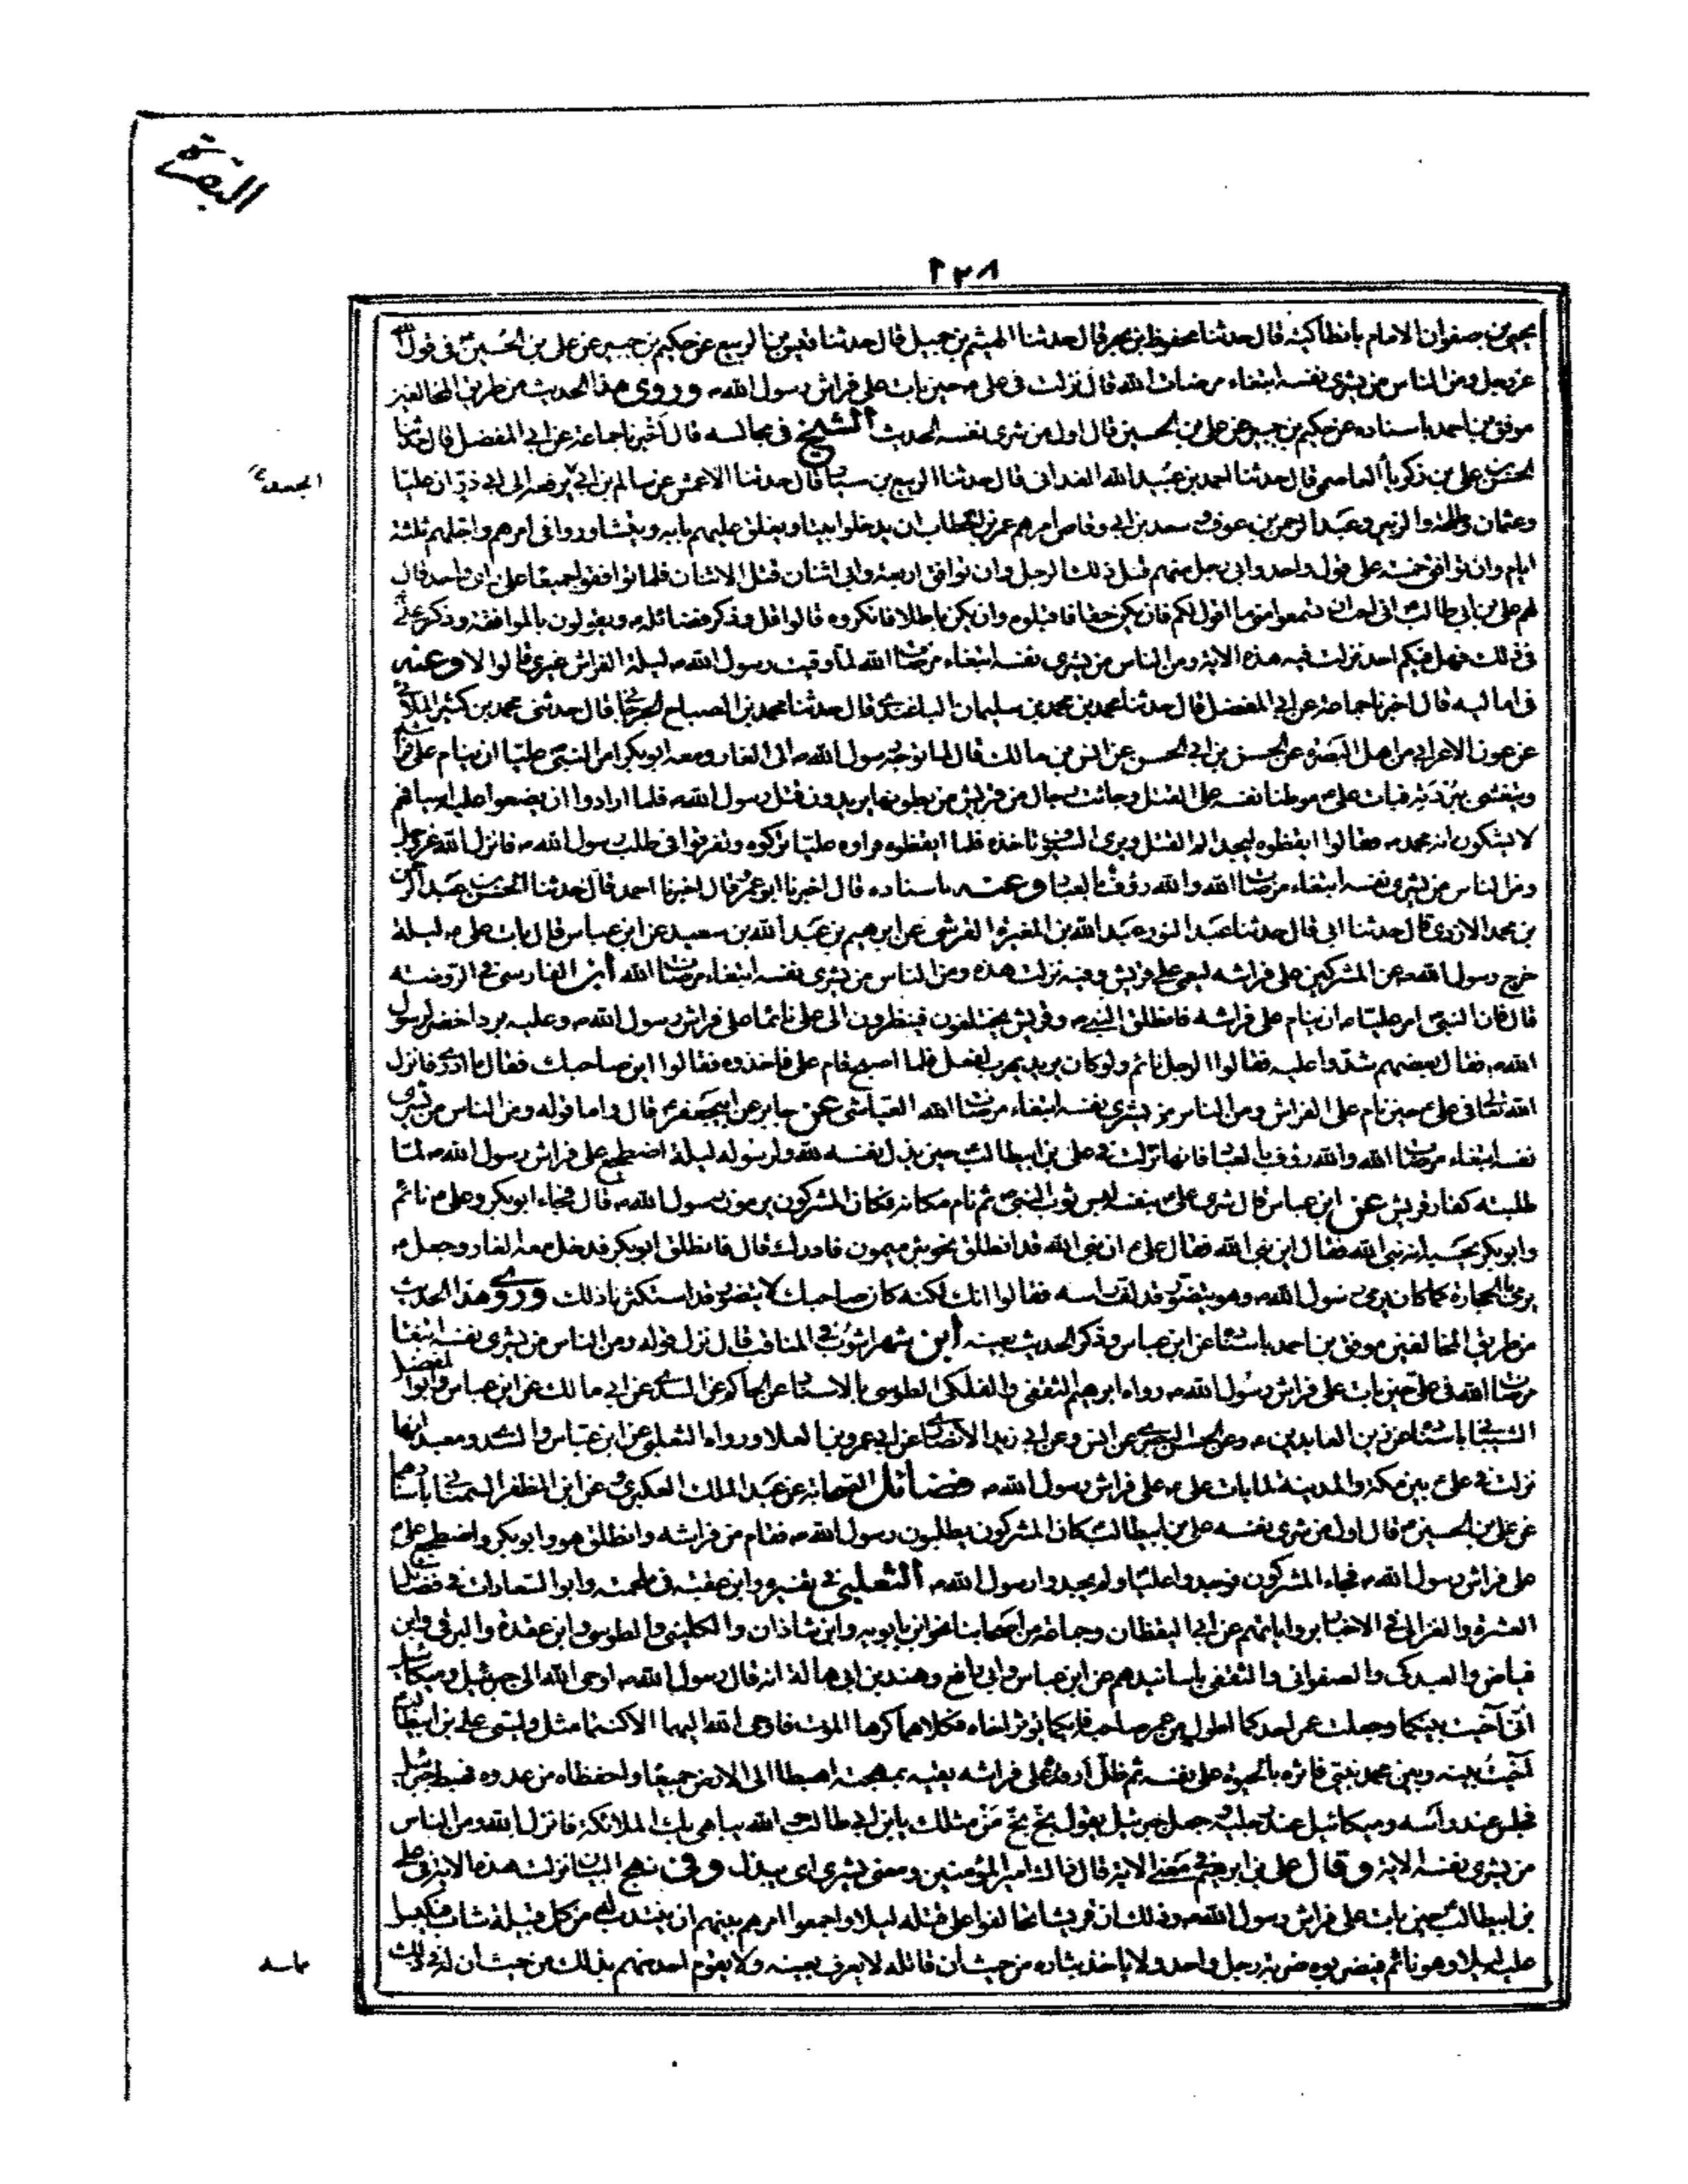 البقرة
١٢٨
يحيى بن صفوان الامام بانطاكية قال حدثنا محفوظ بن بحر قال حدثنا الهيثم بن جميل قال حدثنا قيس بن الربيع عن حكيم بن جبير عن علي بن الحسين في قول
عز وجل ومن الناس من يشري نفسه ابتغاء مرضات الله قال نزلت في علي حين بات على فراش رسول الله وروى هذا الحديث من طريق المخالفين
موفق بن احمد باسناده عن حكيم بن جبير عن علي بن الحسين قال اول من شرى نفسه الحديث الشيخ في مجالسه قال اخبرنا جماعة عن ابي المفضل قال حدثنا
الحسن بن علي بن زكريا العاصمي قال حدثنا احمد بن عبيد الله الغداني قال حدثنا الربيع بن سيار قال حدثنا الاعمش عن سالم بن ابي الجعد يرفعه الى ابي ذر ان عليا
الجعد
وعثمان وطلحة والزبير وعبد الرحمن بن عوف وسعد بن ابي وقاص امرهم عمر بن الخطاب ان يدخلوا بيتا ويغلق عليهم بابه ويتشاوروا في امرهم واجلهم ثلثة
ايام وان توافق خمسة على قول واحد وابى رجل منهم قتل ذلك الرجل وان توافق اربعة وابى اثنان قتل الاثنان فلما توافقوا جميعا على راي واحد قال
لهم علي بن ابي طالب اني احب ان تسمعوا مني ما اقول لكم فان يكن حقا فاقبلوه وان يكن باطلا فانكروه قالوا قل وذكر فضائله ويقولون بالموافقة وذكر علي
في ذلك فهل فيكم احد نزلت فيه هذه الاية ومن الناس من يشري نفسه ابتغاء مرضات الله لما وقيت رسول الله ليلة الفراش غيري قالوا لا وعنه
في اماليه قال اخبرنا جماعة عن ابي المفضل قال حدثنا محمد بن محمد بن سليمان الباغندي قال حدثنا محمد بن الصباح الجرجرائي قال حدثني محمد بن كثير الملائي
عن عون الاعرابي من اهل البصرة عن الحسن بن ابي الحسن عن انس بن مالك قال لما توجه رسول الله الى الغار ومعه ابو بكر امر النبي عليا ان ينام على فراشه
ويتغشى ببردته فبات علي موطنا نفسه على القتل وجائت رجال من قريش من بطونها يريدون قتل رسول الله فلما ارادوا ان يضعوا عليه اسيافهم
لا يشكون انه محمد فقالوا ايقظوه ليجد الم القتل ويرى السيوف تاخذه فلما ايقظوه فراوه عليا تركوه وتفرقوا في طلب رسول الله فانزل الله عز وجل
ومن الناس من يشري نفسه ابتغاء مرضات الله والله رؤف بالعباد وعنه باسناده قال اخبرنا ابو عمر قال اخبرنا احمد قال حدثنا الحسن بن عبد الرحمن
بن محمد الازدي قال حدثنا ابي قال حدثنا عبد النور بن عبد الله بن المغيرة القرشي عن ابرهيم بن عبد الله بن سعيد عن ابن عباس قال بات علي ليلة
خرج رسول الله عن المشركين على فراشه ليعمي على قريش وفيه نزلت هذه ومن الناس من يشري نفسه ابتغاء مرضات الله ابن الفارسي في الروضة
قال قال النبي امر عليا ان ينام على فراشه فانطلق النبي وقريش يختلفون فينظرون الى علي نائما على فراش رسول الله وعليه برد اخضر لرسول
الله فقال بعضهم شدوا عليه فقالوا الرجل نائم ولو كان يريد يهرب لفعل فلما اصبح قام علي فاخذوه فقالوا اين صاحبك فقال ما ادري فانزل
الله تعالى في علي حين نام على الفراش ومن الناس من يشري نفسه ابتغاء مرضات الله العياشي عن جابر عن ابي جعفر قال واما قوله ومن الناس من يشري
نفسه ابتغاء مرضات الله والله رؤف بالعباد فانها نزلت في علي بن ابيطالب حين بذل نفسه لله ولرسوله ليلة اضطجع على فراش رسول الله لما
طلبته كفار قريش عن ابن عباس قال شرى علي بنفسه لبس ثوب النبي ثم نام مكانه فكان المشركون يرمون رسول الله قال فجاء ابو بكر وعلي نائم
وابو بكر يحسبه انه نبي الله فقال اين نبي الله فقال علي ان نبي الله قد انطلق نحو بئر ميمون فادركه قال فانطلق ابو بكر فدخل معه الغار وجعل
يرمى بالحجارة كما كان يرمى رسول الله وهو يتضور قد لف راسه فقالوا انك لكنه كان صاحبك لا يتضور قد استنكرنا ذلك وروى هذا الحديث
من طريق المخالفين موفق بن احمد باسناده عن ابن عباس وذكر الحديث بعينه ابن شهراشوب في المناقب قال نزل قوله ومن الناس من يشري نفسه ابتغاء
مرضات الله في علي حين بات على فراش رسول الله رواه ابرهيم الثقفي والفلكي الطوسي بالاسناد عن الحاكم عن السدي عن ابي مالك عن ابن عباس وابو المفضل
الشيباني باسناده عن زين العابدين وعن الحسن البصري عن انس وعن ابي زيد الانصاري عن ابي عمرو بن العلا ورواه الثعلبي عن ابن عباس والسدي ومعبد انها
نزلت في علي بين مكة والمدينة لما بات علي على فراش رسول الله فضائل الصحابة عن عبد الملك العكبري وعن ابي المظفر السمعاني باسنادهما
عن علي بن الحسين قال اول من شرى نفسه علي بن ابيطالب كان المشركون يطلبون رسول الله فقام من فراشه وانطلق هو وابو بكر واضطجع علي
على فراش رسول الله فجاء المشركون فوجدوا عليا ولم يجدوا رسول الله الثعلبي في تفسيره وابن عقبة في ملحمته وابو السعادات في فضائل
العشرة والغزالي في الاحياء برواياتهم عن ابي اليقظان وجماعة من اصحابنا نحو ابن بابويه وابن شاذان والكليني والطوسي وابن عقدة والبرقي وابن
فياض والعبدكي والصفواني والثقفي باسانيدهم عن ابن عباس وابي رافع وهند بن ابي هالة انه قال رسول الله اوحى الله الى جبرئيل وميكائيل
اني آخيت بينكما وجعلت عمر احدكما اطول من عمر صاحبه فايكما يؤثر اخاه فكلاهما كرها الموت فاوحى الله اليهما الا كنتما مثل وليي علي بن ابيطالب
آخيت بينه وبين محمد نبيي فاثره بالحيوة على نفسه ثم ظل ارقد على فراشه يقيه بمهجته اهبطا الى الارض جميعا واحفظاه من عدوه فهبط جبرئيل
فجلس عند راسه وميكائيل عند رجليه وجعل جبرئيل يقول بخ بخ من مثلك يابن ابي طالب الله يباهي بك الملائكة فانزل الله ومن الناس
من يشري نفسه الاية وقال علي بن ابرهيم في معنى الاية قال ذاك امير المؤمنين ومعنى يشري اي يبذل وفي نهج البيان نزلت هذه الاية في علي
بن ابيطالب حين بات على فراش رسول الله وذلك ان قريشا تحالفوا على قتله ليلا واجمعوا امرهم بينهم ان ينتدب له من كل قبيلة شاب فيكبسوا
عليه ليلا وهو نائم فيضربوه ضربة رجل واحد ولا ياخذ بثاره من حيث ان قاتله لا يعرف بعينه ولا يقوم احد منهم بذلك من حيث ان له في ذلك